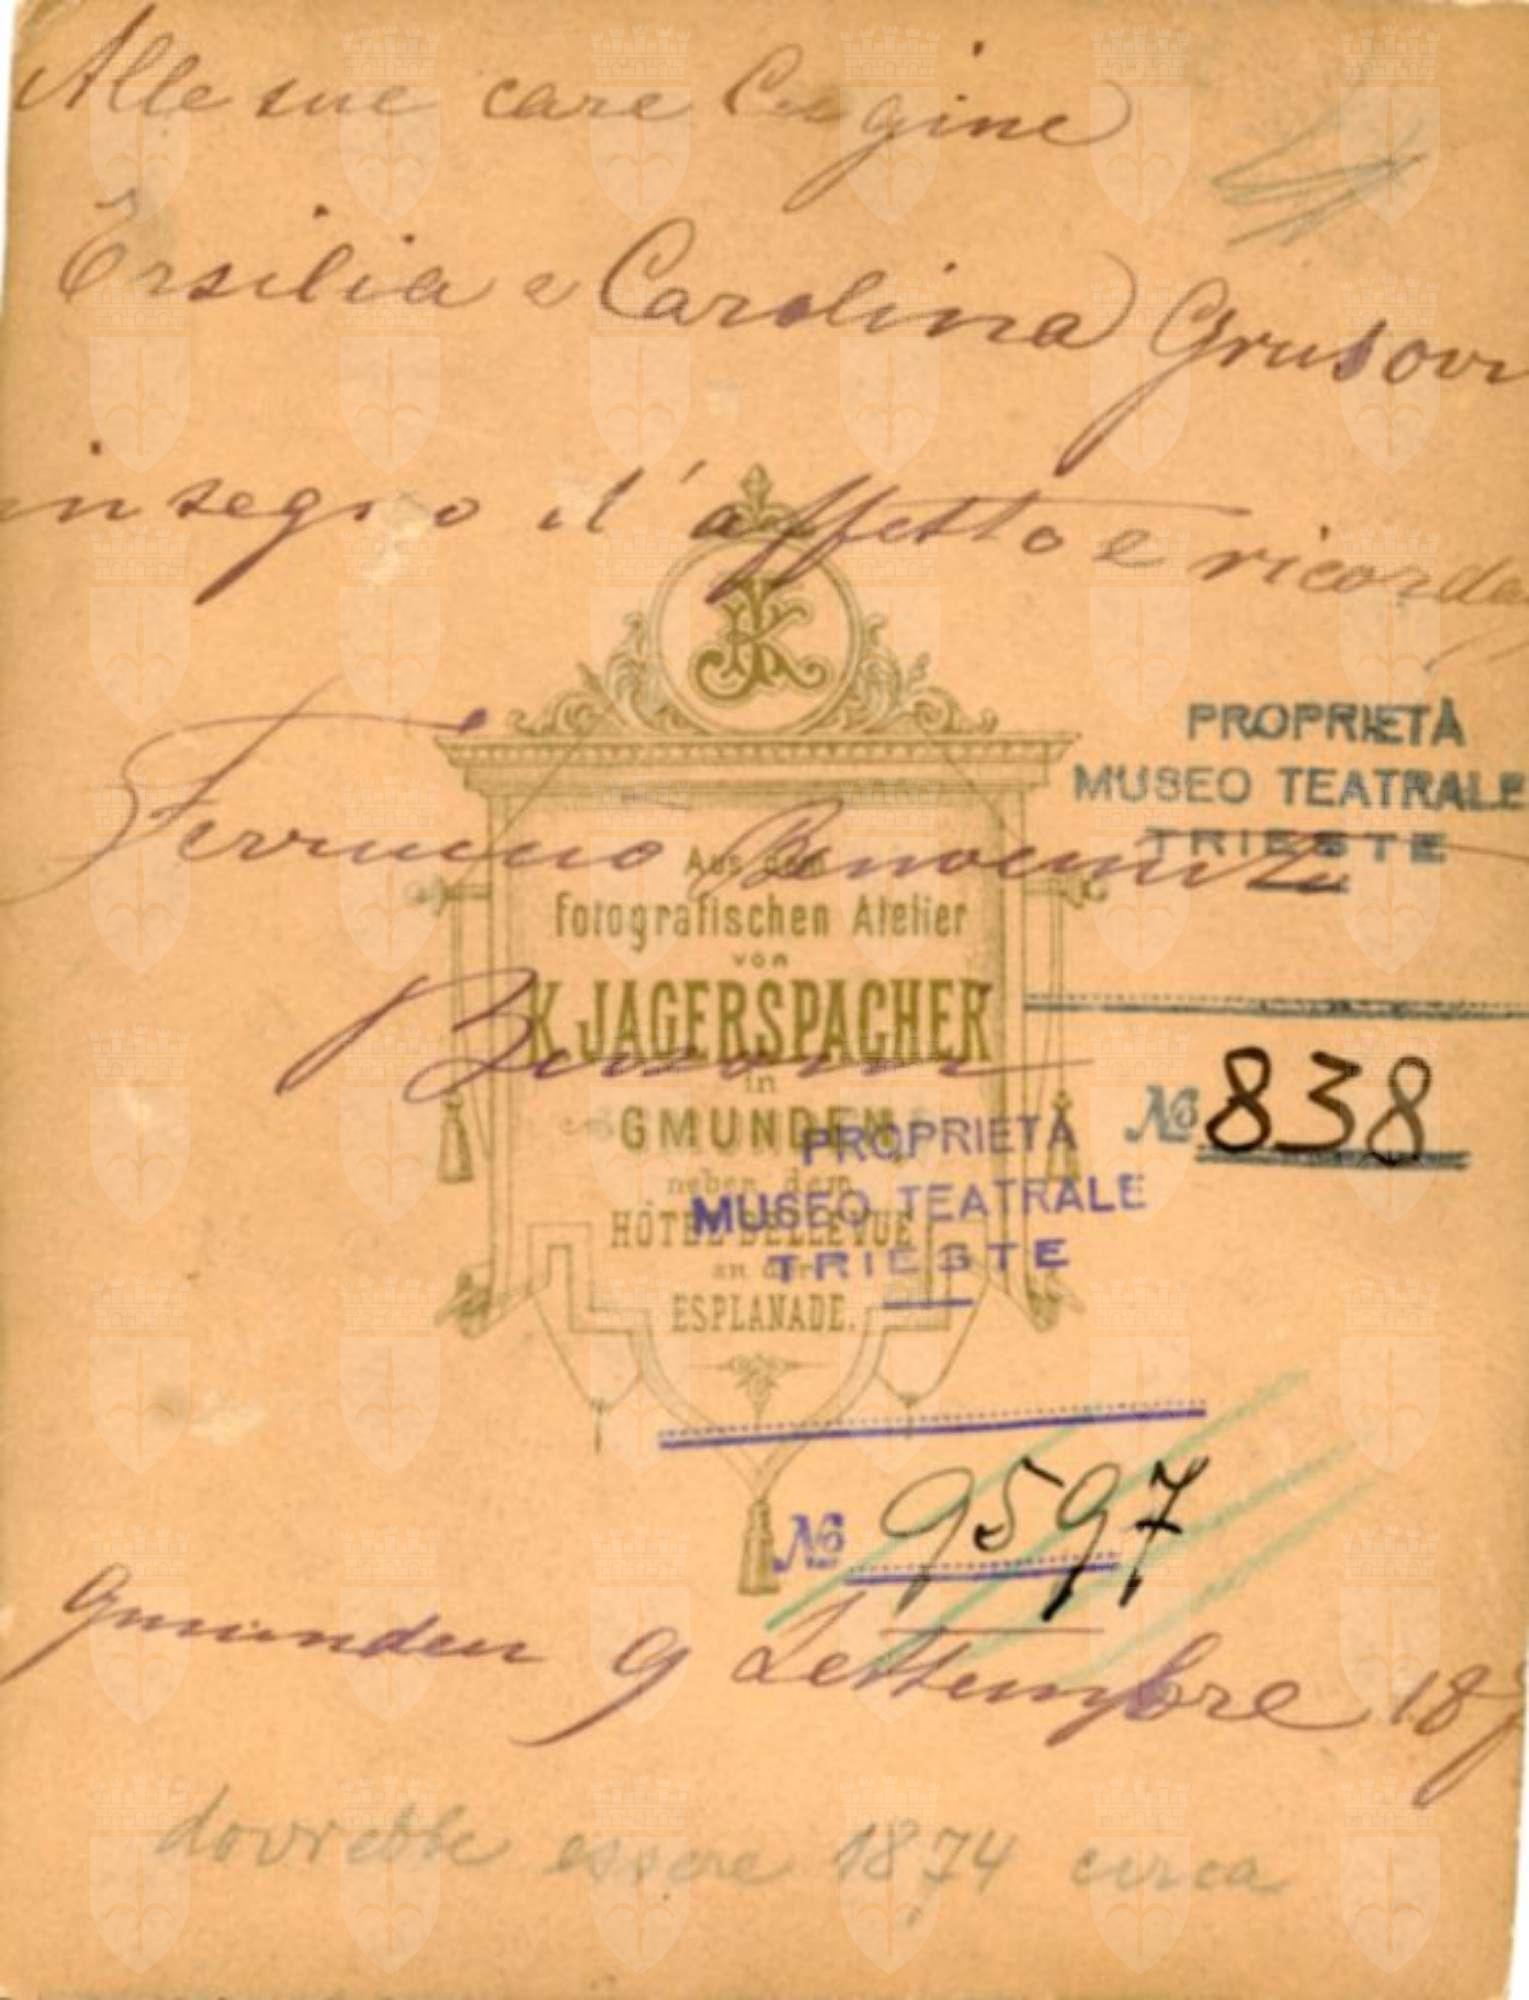 Alle sue care Cugine
Ersilia e Carolina Grusovi
in segno d'affetto e ricorda
Ferruccio Benvenuto
Busoni
JK
Aus dem
fotografischen Atelier
von
K. JAGERSPACHER
in
GMUNDEN
neben dem
HÔTEL BELLEVUE
an der
ESPLANADE.
PROPRIETÀ
MUSEO TEATRALE
TRIESTE
No 838
PROPRIETÀ
MUSEO TEATRALE
TRIESTE
No 9597
Gmunden 9 Settembre 187
dovrebbe essere 1874 circa